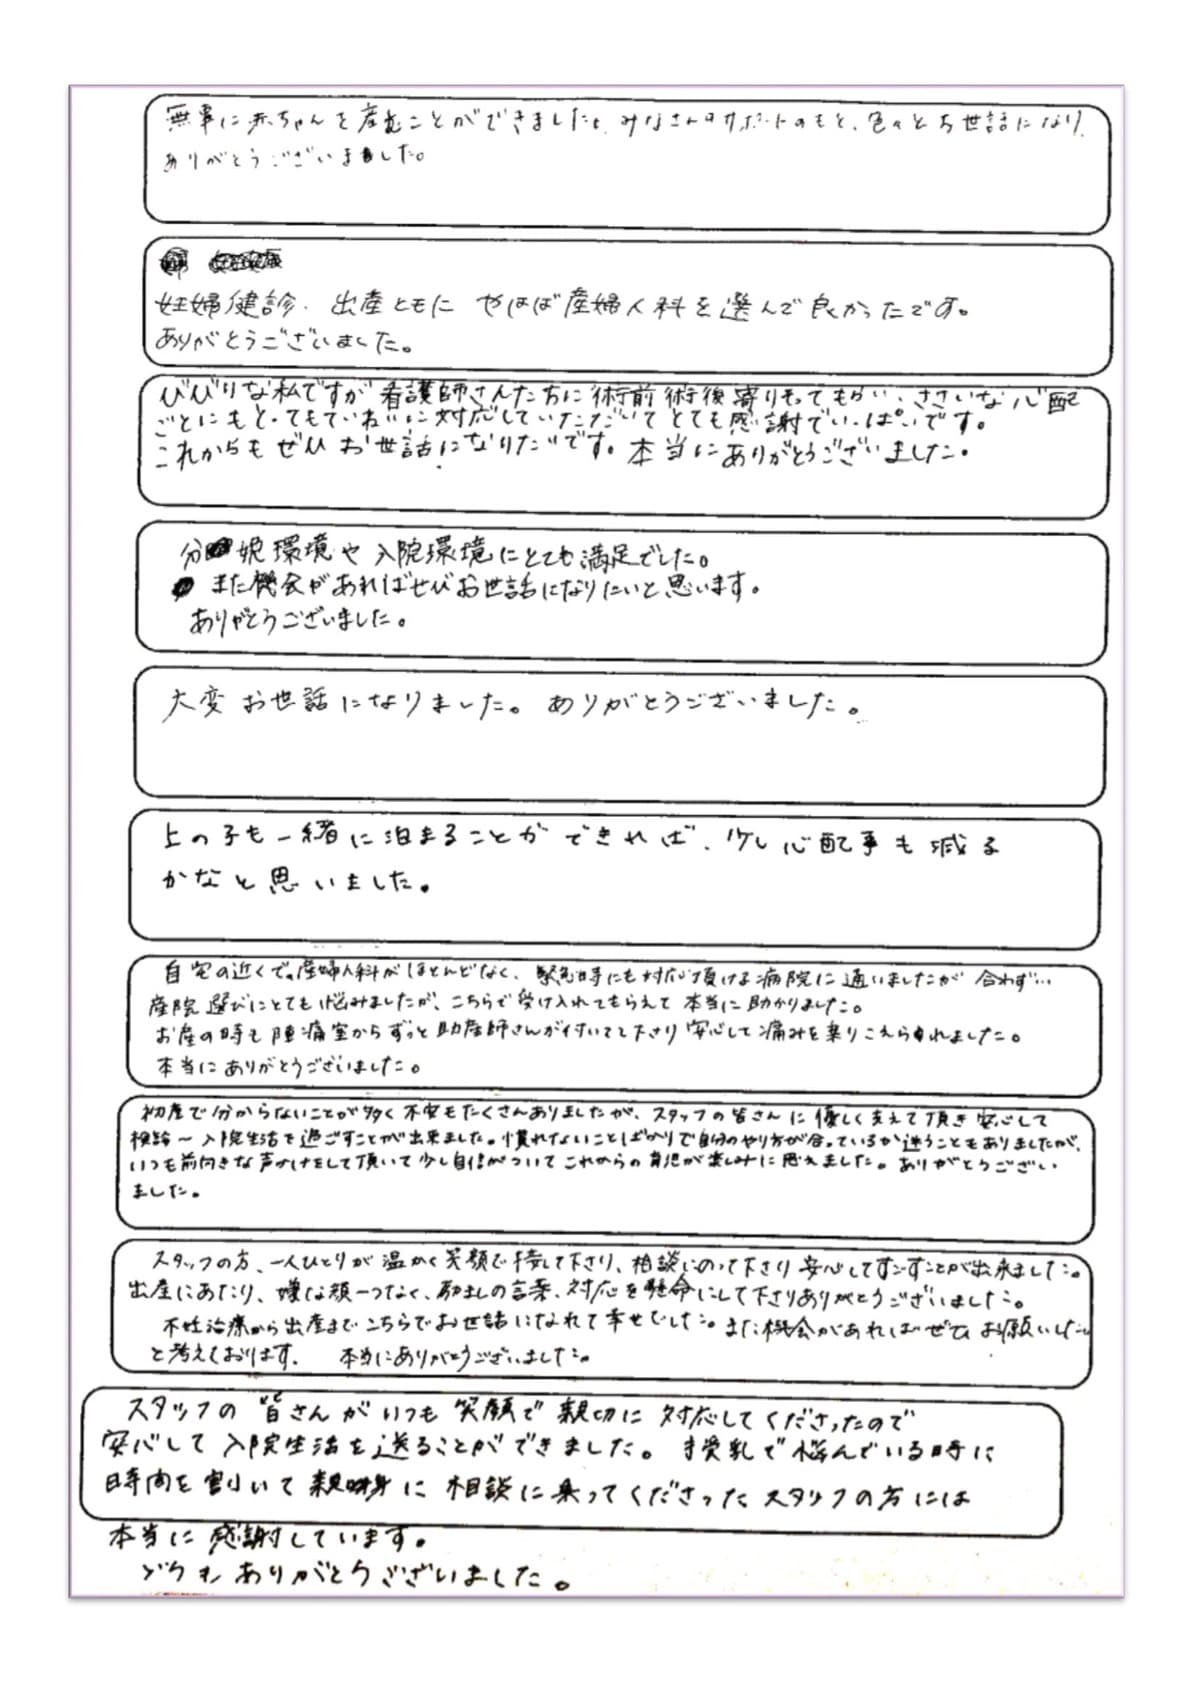 無事に赤ちゃんを産むことができました。みなさんのサポートのもと、色々とお世話になり、
ありがとうございました。
妊婦健診、出産ともに やはば産婦人科を選んで良かったです。
ありがとうございました。
びびりな私ですが看護師さんたちに術前術後寄りそってもらい、ささいな心配
ごとにもとってもていねいに対応していただいてとても感謝でいっぱいです。
これからもぜひお世話になりたいです。本当にありがとうございました。
分娩環境や入院環境にとても満足でした。
また機会があればぜひお世話になりたいと思います。
ありがとうございました。
大変お世話になりました。ありがとうございました。
上の子も一緒に泊まることができれば、少し心配事も減る
かなと思いました。
自宅の近くで産婦人科がほとんどなく、緊急時にも対応頂ける病院に通いましたが合わず…
産院選びにとても悩みましたが、こちらで受け入れてもらえて本当に助かりました。
お産の時も陣痛室からずっと助産師さんが付いてて下さり安心して痛みを乗りこえられました。
本当にありがとうございました。
初産で分からないことが多く不安もたくさんありましたが、スタッフの皆さんに優しく支えて頂き安心して
検診〜入院生活を過ごすことが出来ました。慣れないことばかりで自分のやり方が合っているか迷うこともありましたが、
いつも前向きな声かけをして頂いて少し自信がついてこれからの育児が楽しみに思えました。ありがとうござい
ました。
スタッフの方、一人ひとりが温かく笑顔で接して下さり、相談にのって下さり安心してすごすことが出来ました。
出産にあたり、嫌な顔一つなく、励ましの言葉、対応を懸命にして下さりありがとうございました。
不妊治療から出産までこちらでお世話になれて幸せでした。また機会があればぜひお願いしたい
と考えております。 本当にありがとうございました。
スタッフの皆さんがいつも笑顔で親切に対応してくださったので
安心して入院生活を送ることができました。授乳で悩んでいる時に
時間を割いて親身に相談に乗ってくださったスタッフの方には
本当に感謝しています。
どうもありがとうございました。